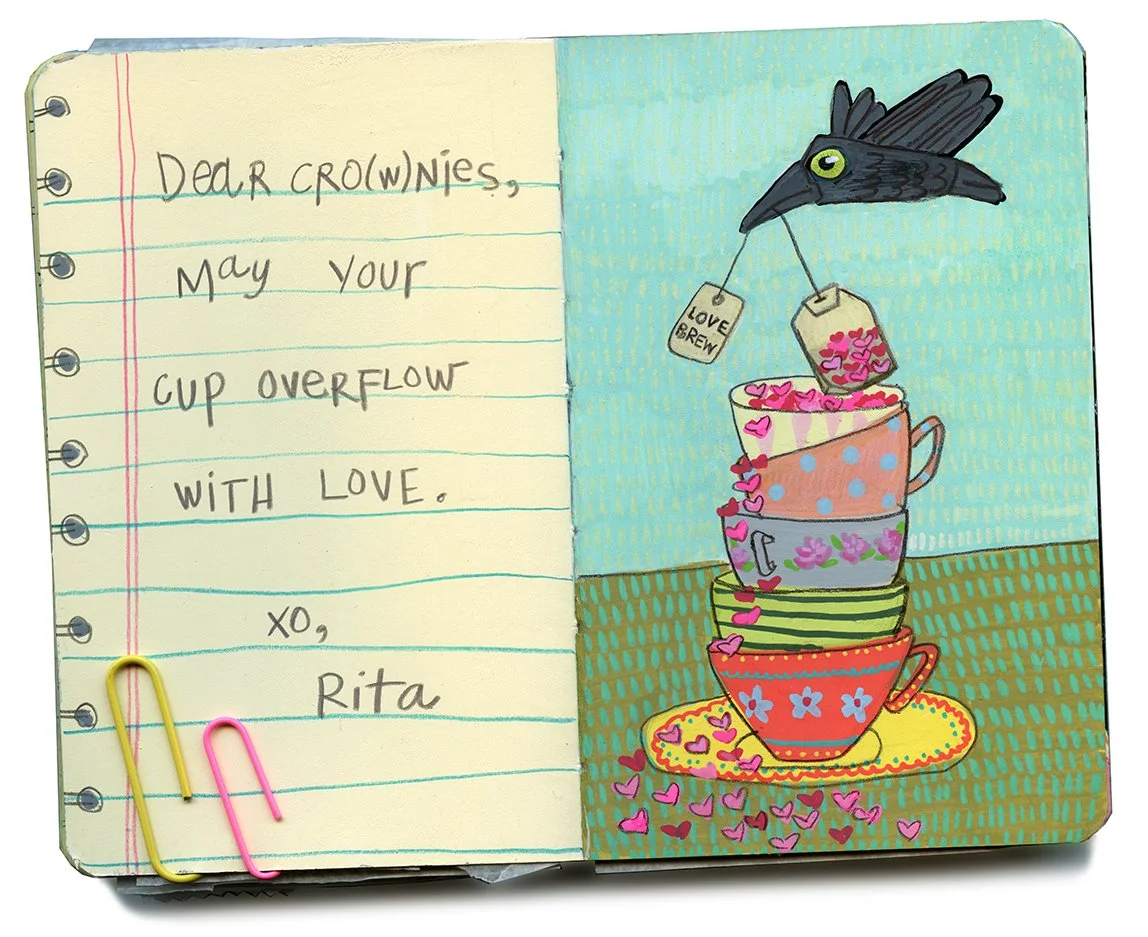 Dear CRO(W)Nies,
May Your
CUP OVERFLOW
WITH LOVE.
XO,
Rita
LOVE
BREW